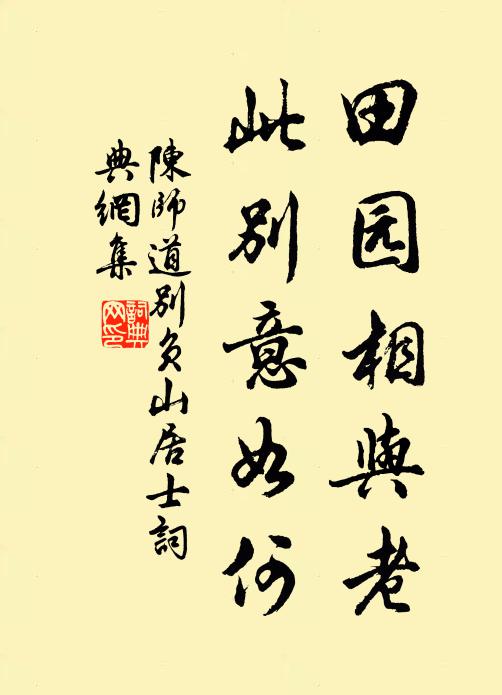 田园相與老
此别意如何
陳師道别负山居士詞
典網集
詞典
网印